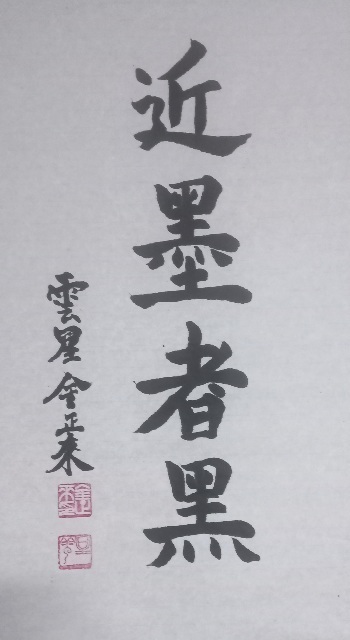 近墨者黑
雲星金正来